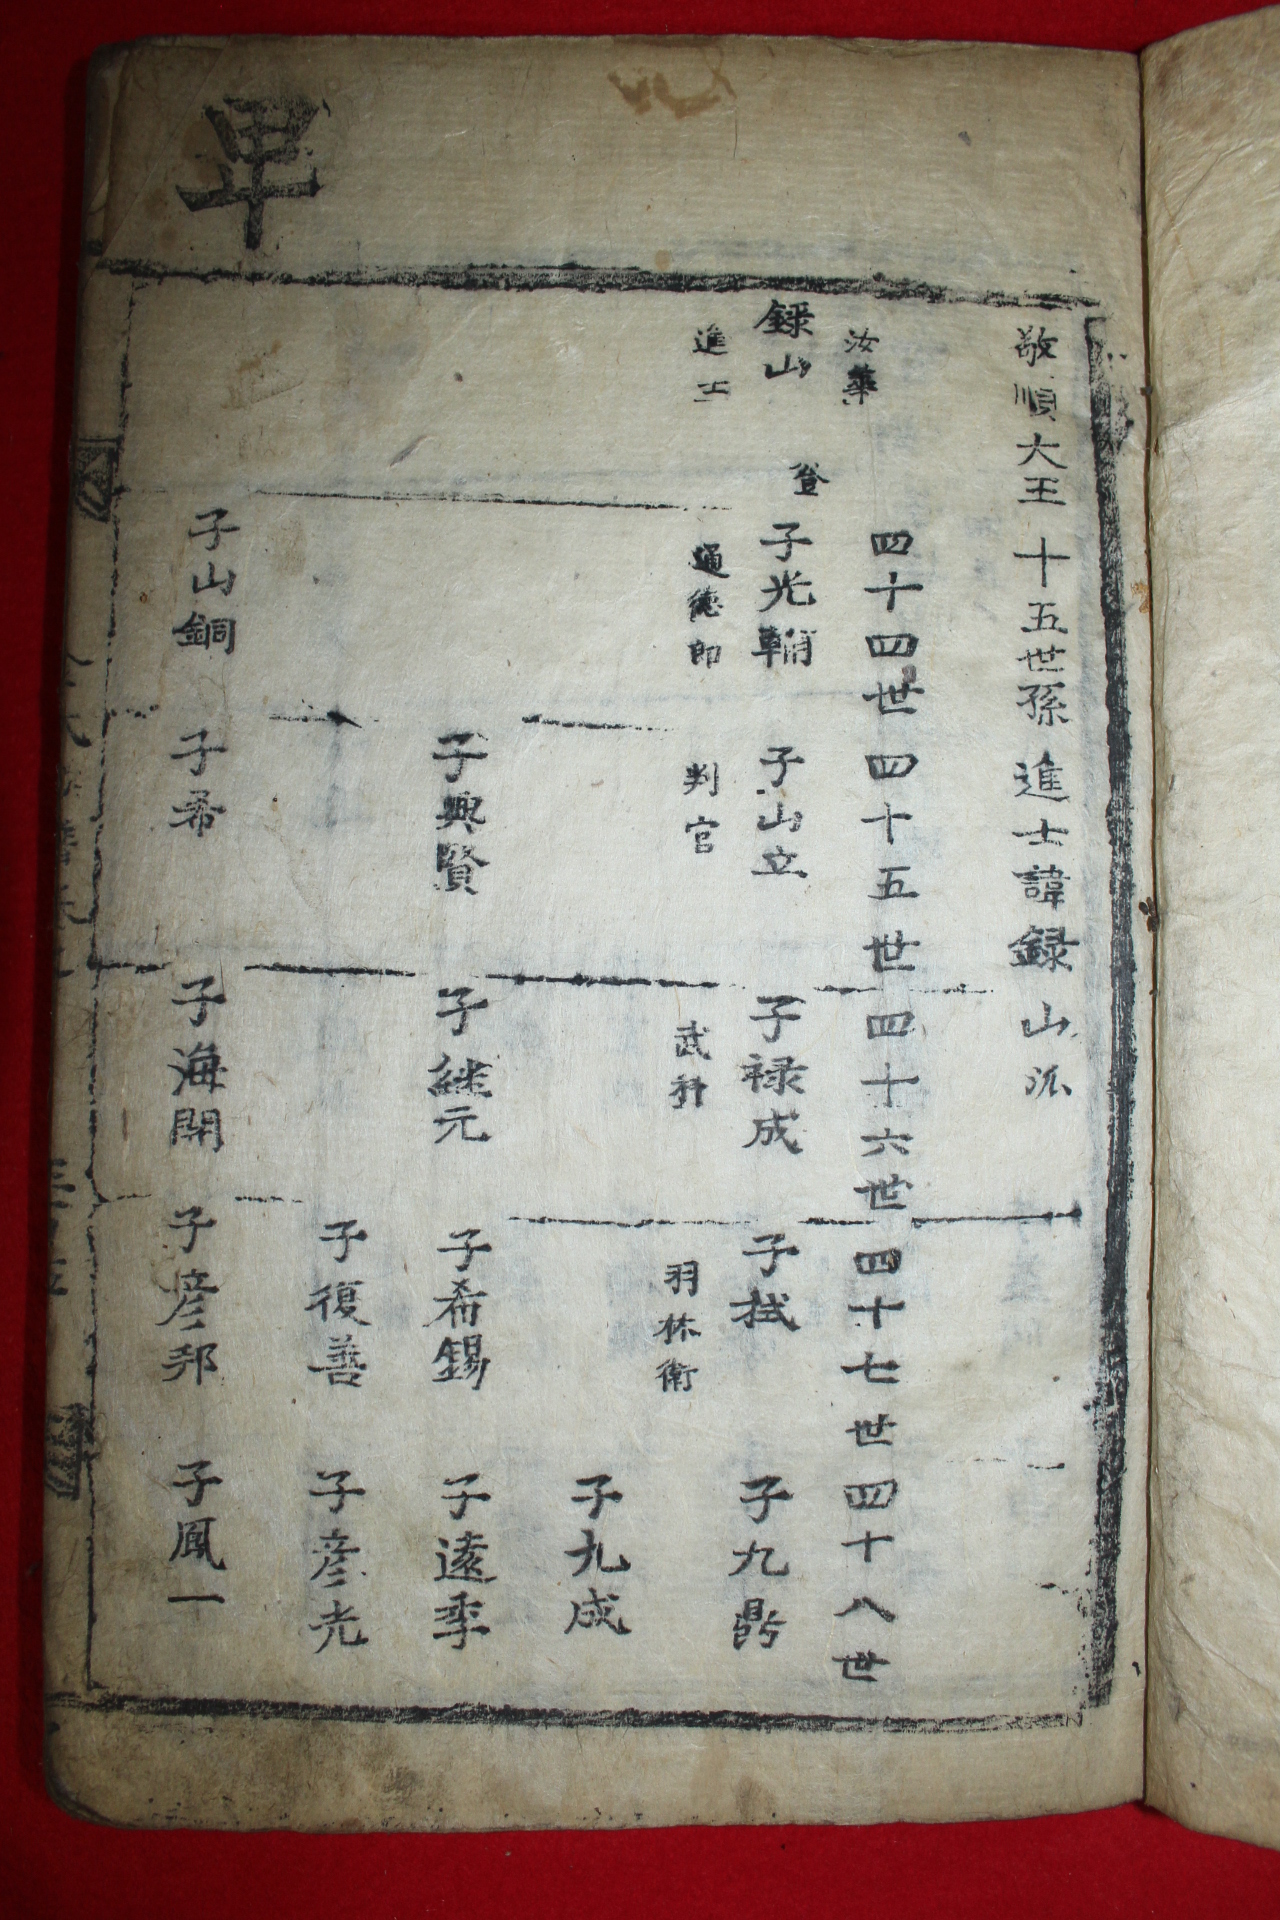 敬順大王十五世孫進士諱録山派
四十四世四十五世四十六世四十七世四十八世
汝華
録山
進士
登
子光輔
通德郎
子山立
判官
子禄成
武科
子栻
羽林衛
子九鼎
子九成
子興賢
子継元
子希錫
子遠季
子復善
子彦光
子山銅
子希
子海開
子彦邦
子鳳一